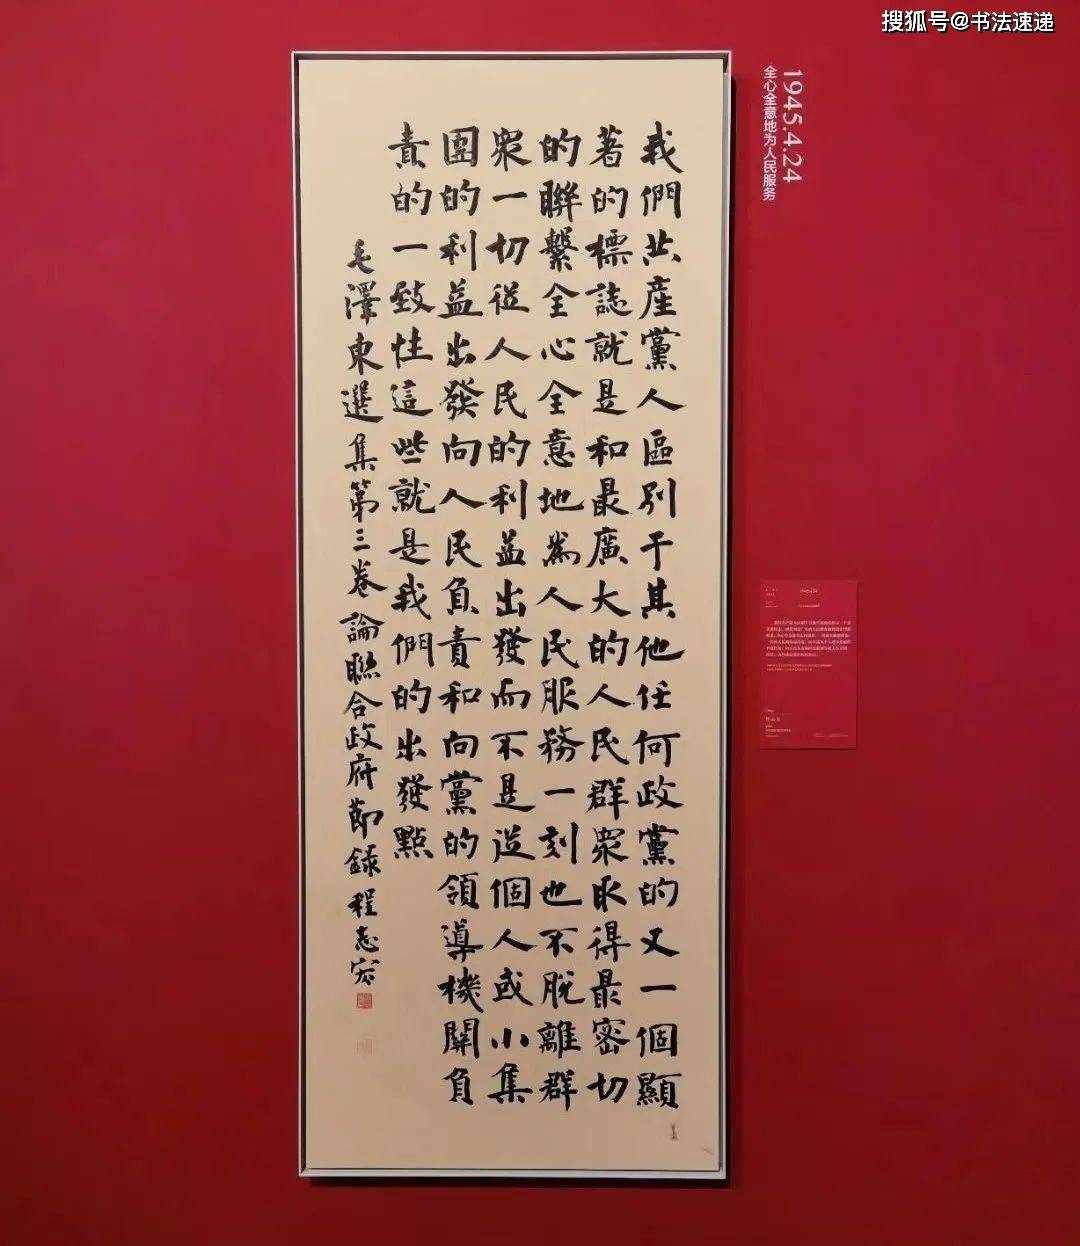 搜狐号@书法速递
1945.4.24
全心全意地为人民服务
我們共産黨人區別于其他任何政黨的又一個顯
著的標誌就是和最廣大的人民群眾取得最密切
的聯繫全心全意地為人民服務一刻也不脫離群
眾一切從人民的利益出發而不是從個人或小集
團的利益出發向人民負責和向黨的領導機關負
責的一致性這些就是我們的出發點
毛澤東選集第三卷論聯合政府節錄 程志宏